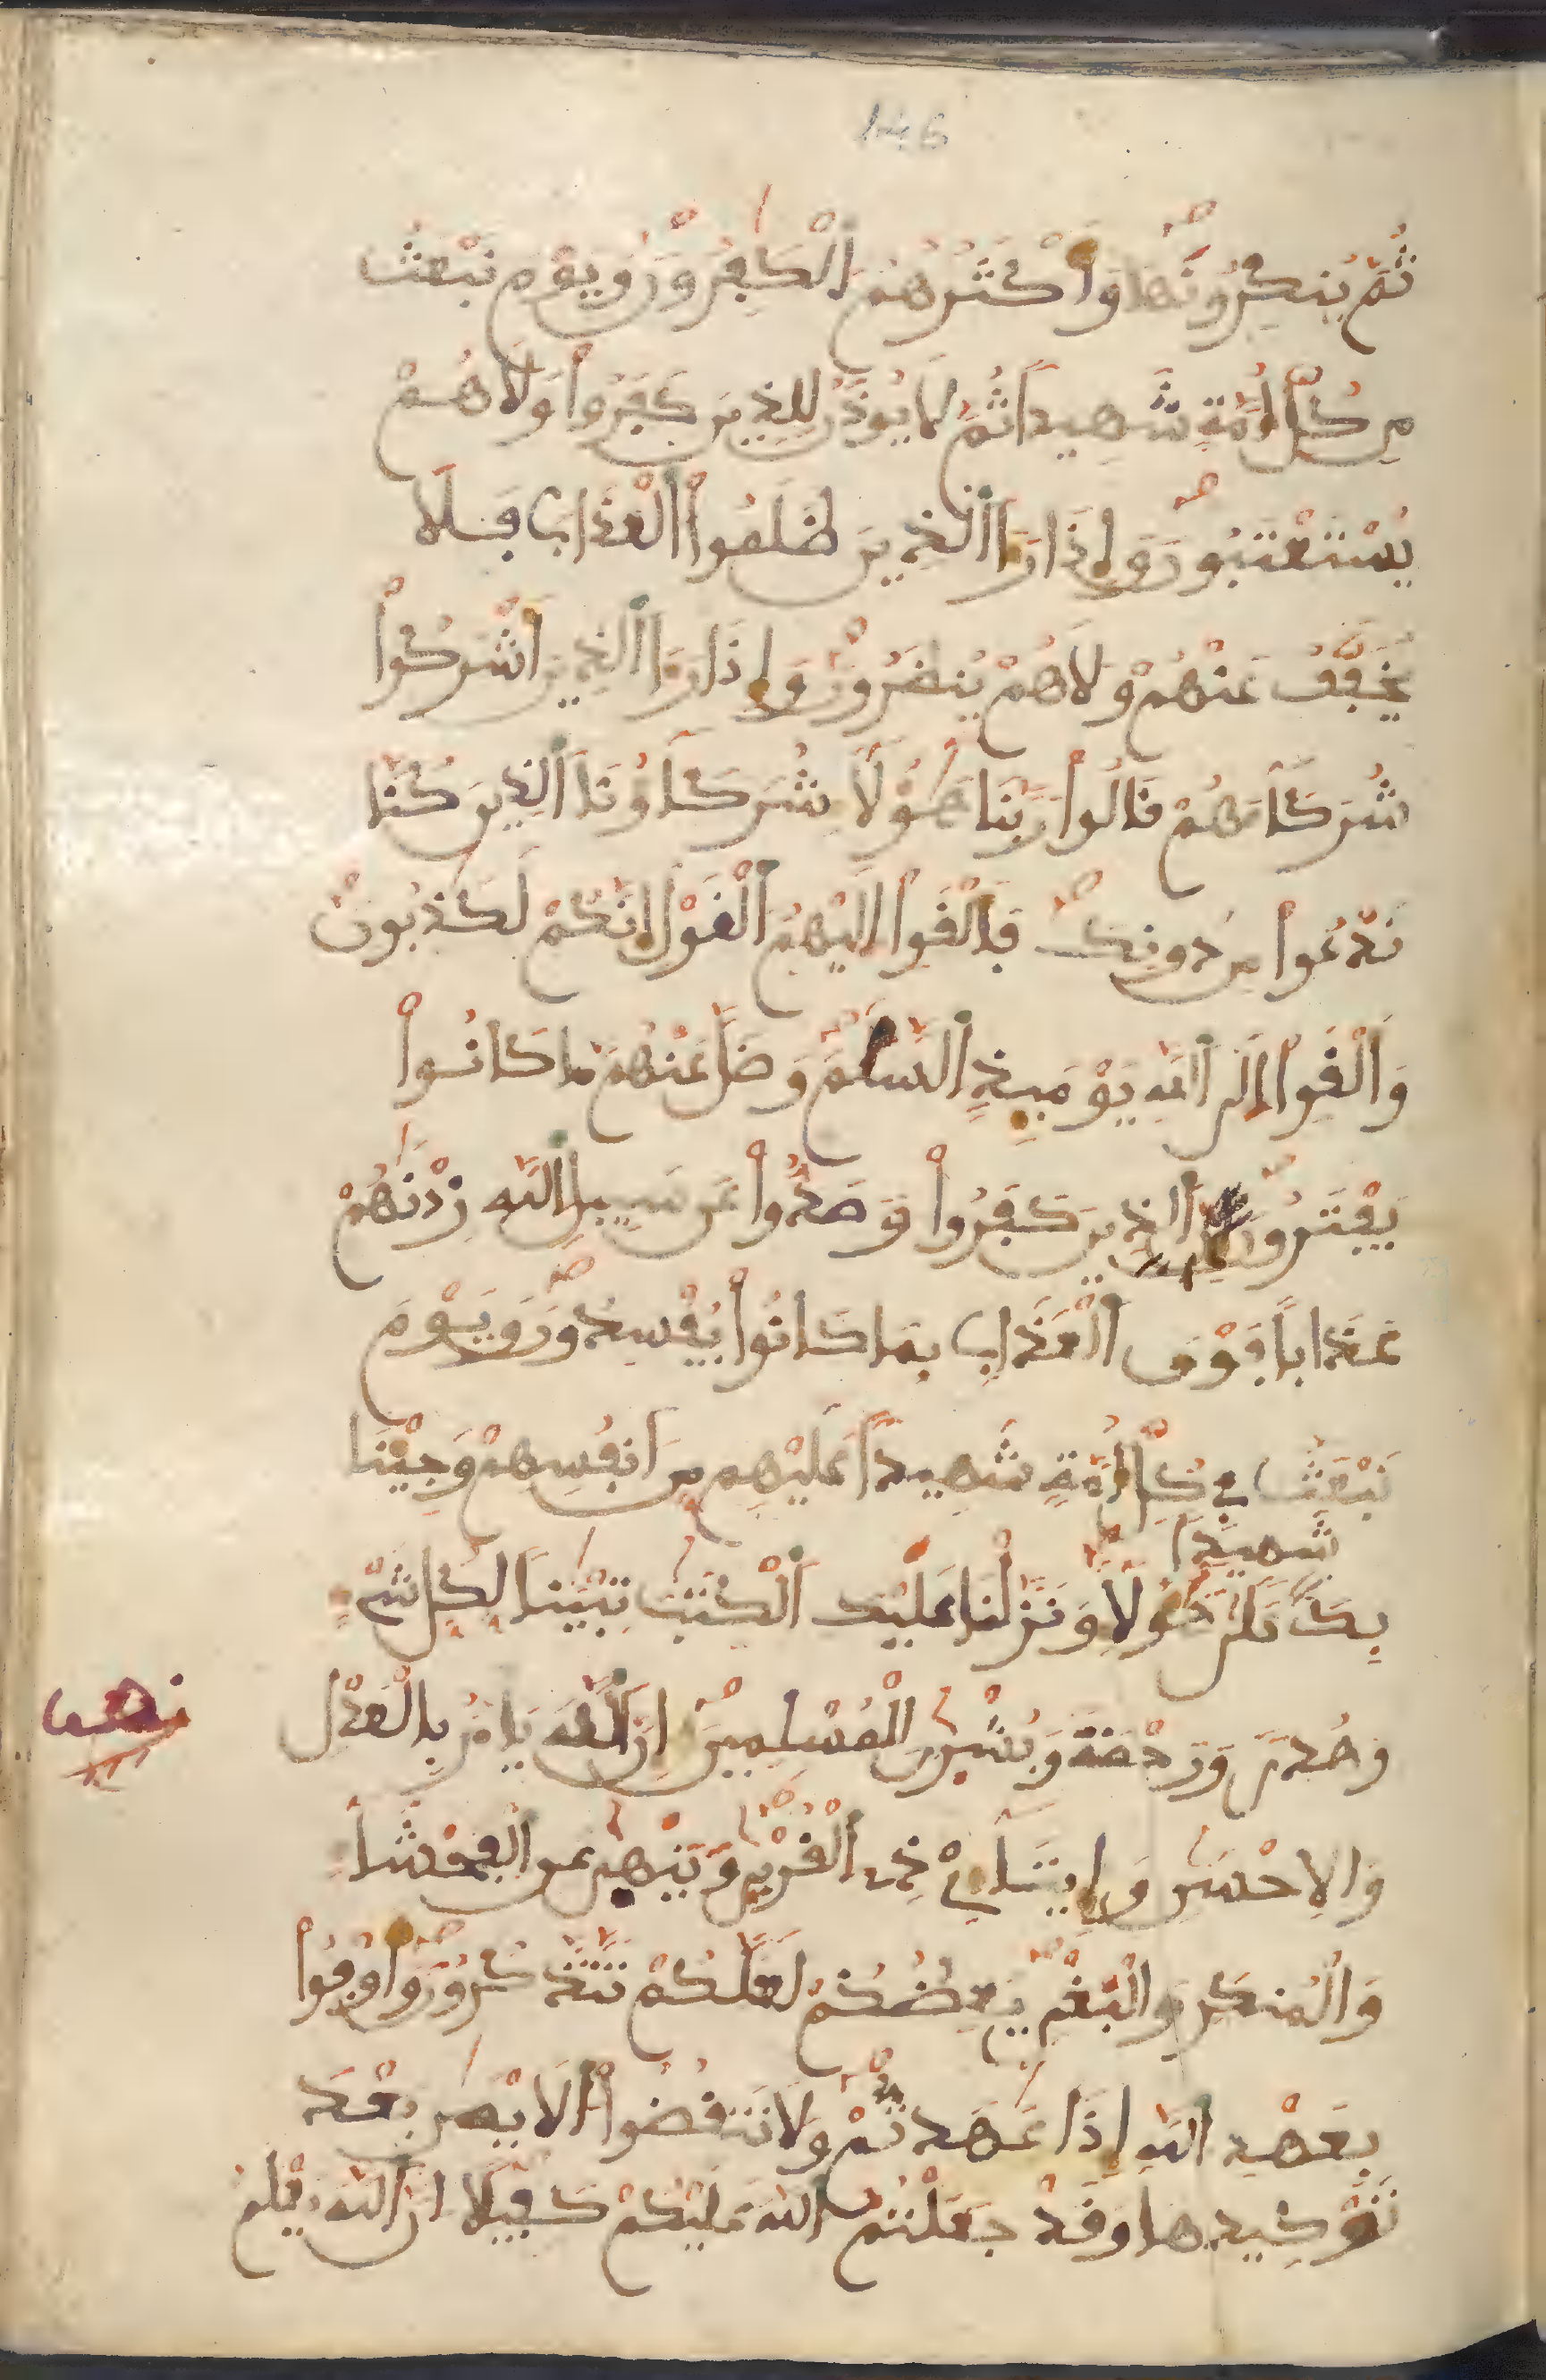 146
ثُمَّ يُنكِرُونَهَا وَأَكْثَرُهُمُ الْكَٰفِرُونَ وَيَوْمَ نَبْعَثُ
مِن كُلِّ أُمَّةٍ شَهِيداً ثُمَّ لَا يُوذَنُ لِلذِينَ كَفَرُواْ وَلَا هُمْ
يُسْتَعْتَبُونَ وَإِذَا رَءَا اَلذِينَ ظَلَمُواْ الْعَذَابَ فَلَا
يُخَفَّفُ عَنْهُمْ وَلَا هُمْ يُنظَرُونَ وَإِذَا رَءَا اَلذِينَ أَشْرَكُواْ
شُرَكَآءَهُمْ قَالُواْ رَبَّنَا هَٰٓؤُلَآءِ شُرَكَآؤُنَا اَلذِينَ كُنَّا
نَدْعُواْ مِن دُونِكَ فَأَلْقَوِاْ اِلَيْهِمُ الْقَوْلَ إِنَّكُمْ لَكَٰذِبُونَ
وَأَلْقَوِاْ اِلَى اَللَّهِ يَوْمَئِذٍ اِلسَّلَمَ وَضَلَّ عَنْهُم مَّا كَانُواْ
يَفْتَرُونَ اَلذِينَ كَفَرُواْ وَصَدُّواْ عَن سَبِيلِ اِللَّهِ زِدْنَٰهُمْ
عَذَاباً فَوْقَ اَلْعَذَابِ بِمَا كَانُواْ يُفْسِدُونَ وَيَوْمَ
نَبْعَثُ فِي كُلِّ أُمَّةٍ شَهِيداً عَلَيْهِم مِّنَ اَنفُسِهِمْ وَجِئْنَا
شَهِيداً
بِكَ عَلَىٰ هَٰٓؤُلَآءِ وَنَزَّلْنَا عَلَيْكَ اَلْكِتَٰبَ تِبْيَٰناً لِّكُلِّ شَےْءٍ
وَهُدىً وَرَحْمَةً وَبُشْرَىٰ لِلْمُسْلِمِينَ إِنَّ اَللَّهَ يَامُرُ بِالْعَدْلِ
نصف
وَالِاحْسَٰنِ وَإِيتَآءِےْ ذِے اِلْقُرْبَىٰ وَيَنْهَىٰ عَنِ اِلْفَحْشَآءِ
وَالْمُنكَرِ وَالْبَغْيِ يَعِظُكُمْ لَعَلَّكُمْ تَذَّكَّرُونَ وَأَوْفُواْ
بِعَهْدِ اِللَّهِ إِذَا عَٰهَدتُّمْ وَلَا تَنقُضُواْ اَلَايْمَٰنَ بَعْدَ
تَوْكِيدِهَا وَقَدْ جَعَلْتُمُ اللَّهَ عَلَيْكُمْ كَفِيلًا اِنَّ اَللَّهَ يَعْلَمُ